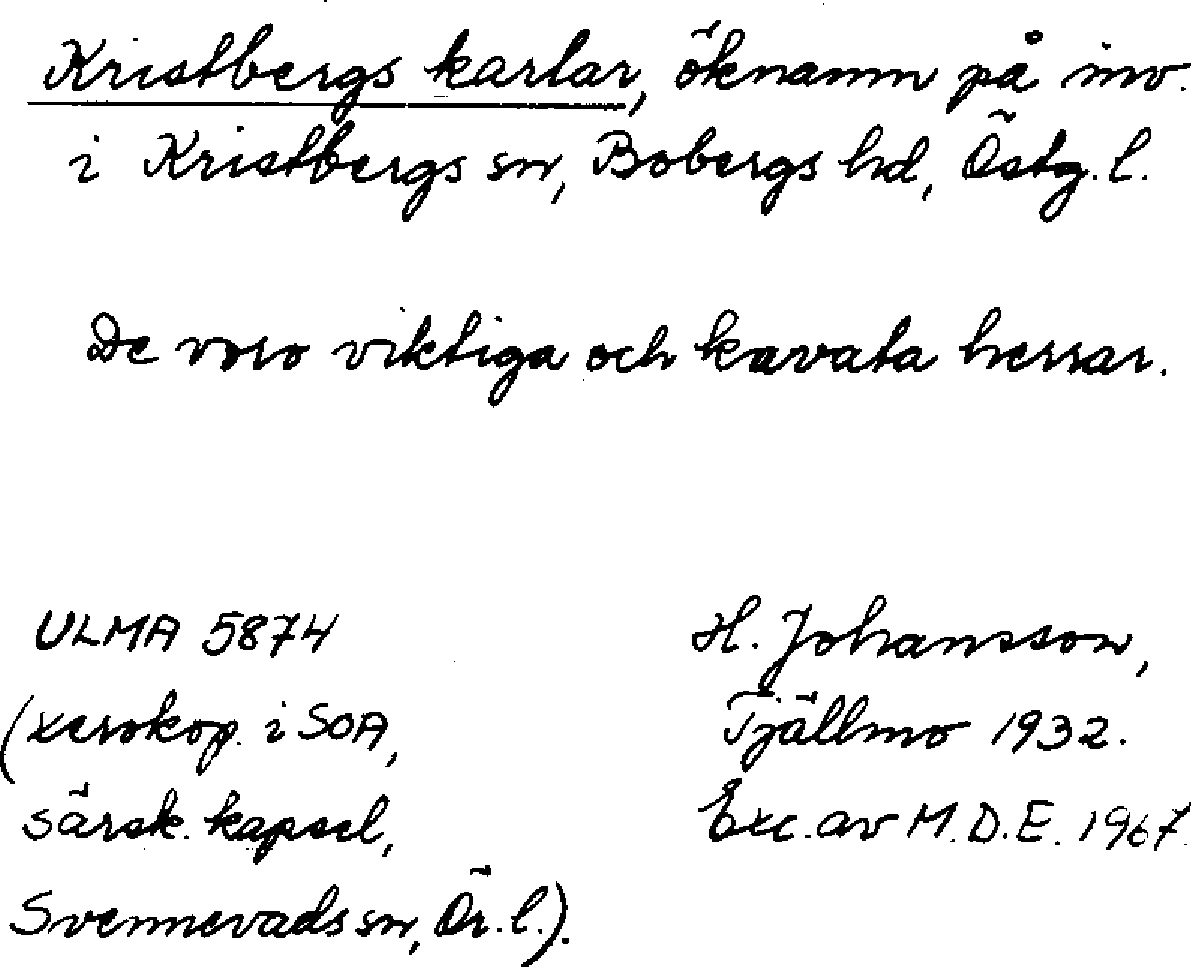 Kristbergs karlar, öknamn på inv.
i Kristbergs sn, Bobergs hd, Östg. l.
De voro viktiga och kavata herrar.
ULMA 5874
(xerokop. i SOA,
särsk. kapsel,
Svennevads sn, Ör. l.).
H. Johansson,
Tjällmo 1932.
Exc. av M.D.E. 1967.